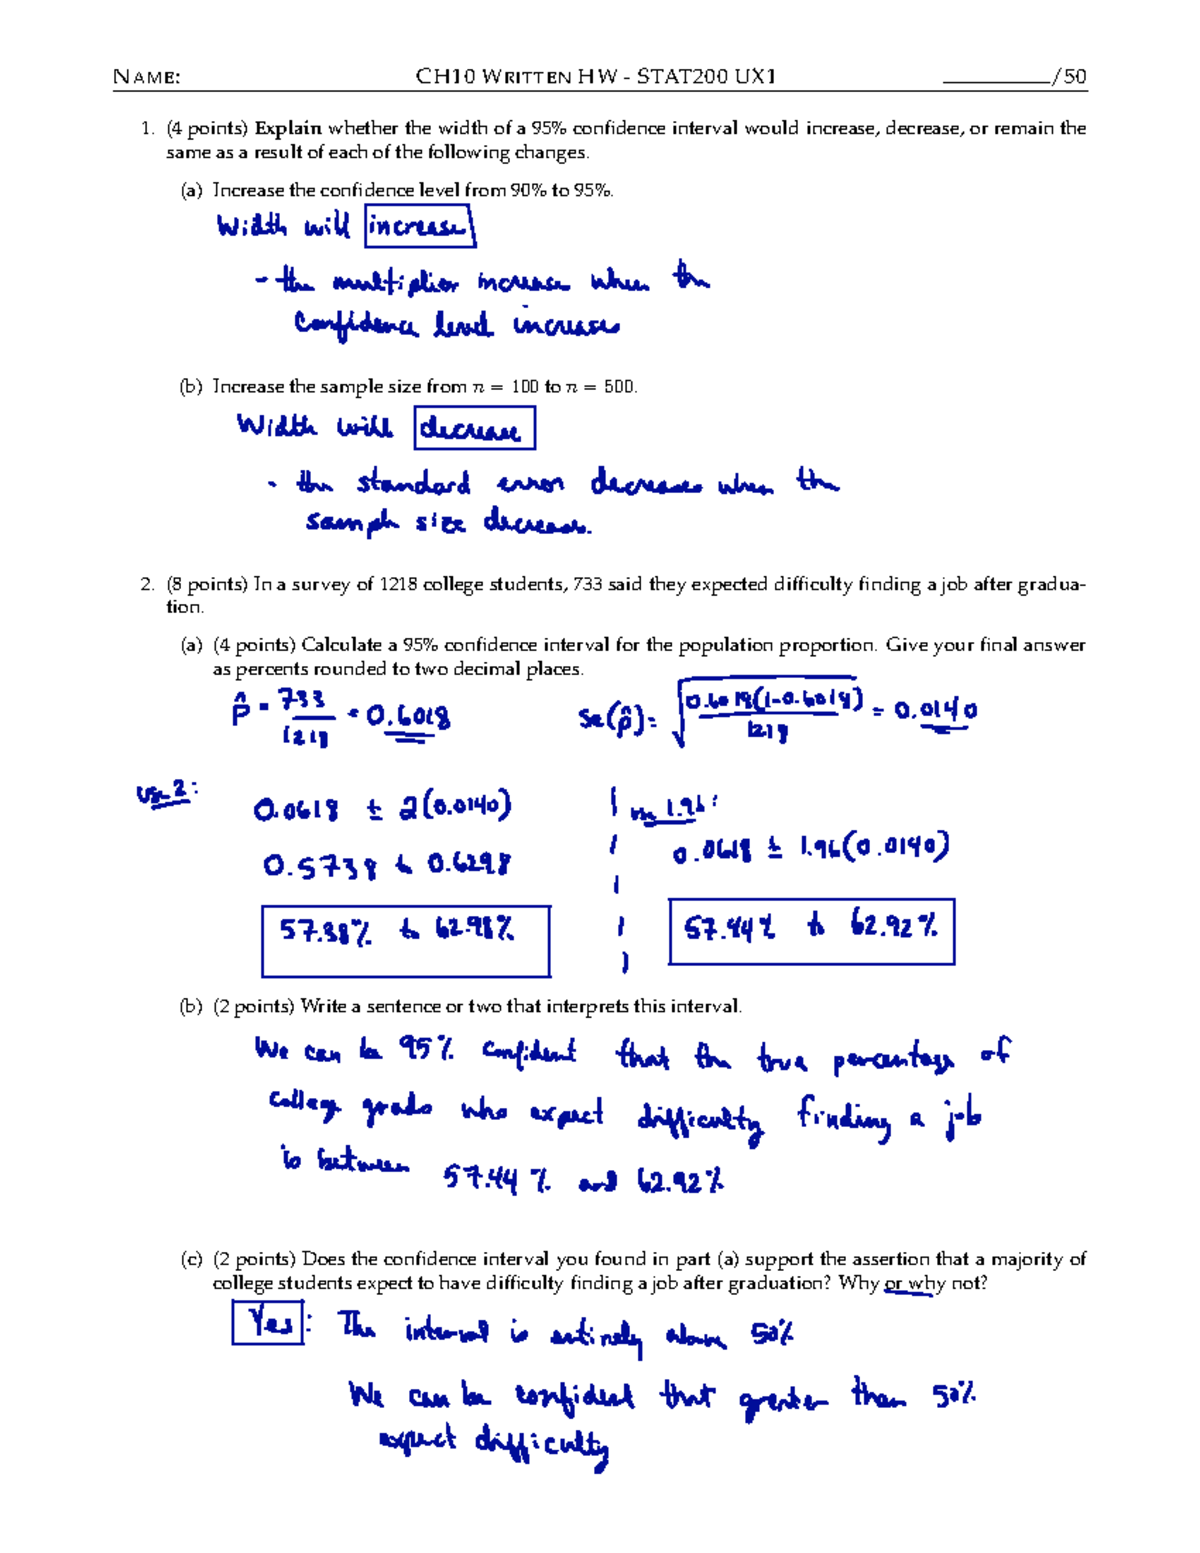 NAME: CH10 WRITTEN HW - STAT200 UX1 /50
1. (4 points) Explain whether the width of a 95% confidence interval would increase, decrease, or remain the
same as a result of each of the following changes.
(a) Increase the confidence level from 90% to 95%.
Width will increase
- the multiplier increase when the
confidence level increases
(b) Increase the sample size from n = 100 to n = 500.
Width will decrease
- the standard error decreases when the
sample size decrease.
2. (8 points) In a survey of 1218 college students, 733 said they expected difficulty finding a job after gradua-
tion.
(a) (4 points) Calculate a 95% confidence interval for the population proportion. Give your final answer
as percents rounded to two decimal places.
p̂ = 733/1218 = 0.6018 se(p̂) = √(0.6018(1-0.6018)/1218) = 0.0140
use 2:
0.0618 ± 2(0.0140)
1.96:
0.0618 ± 1.96(0.0140)
0.5738 to 0.6298
57.38% to 62.98%
57.44% to 62.92%
(b) (2 points) Write a sentence or two that interprets this interval.
We can be 95% confident that the true percentage of
college grads who expect difficulty finding a job
is between 57.44% and 62.92%
(c) (2 points) Does the confidence interval you found in part (a) support the assertion that a majority of
college students expect to have difficulty finding a job after graduation? Why or why not?
Yes: The interval is entirely above 50%
We can be confident that greater than 50%
expect difficulty